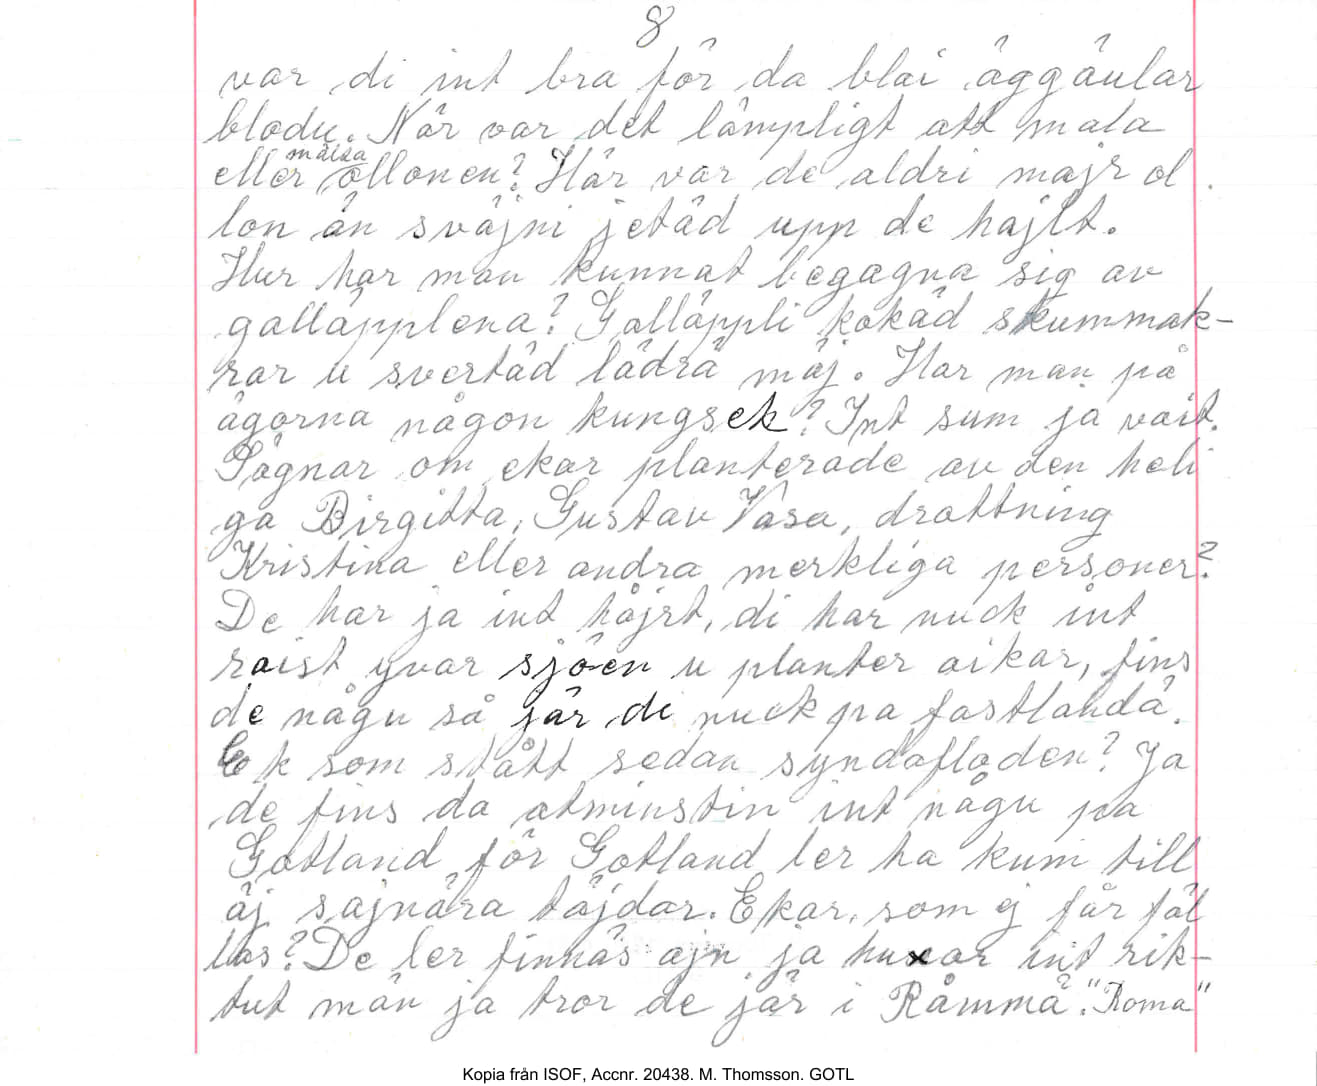 8
var di int bra för da blai äggäular
blodu. När var det lämpligt att mala
eller mälta ållonen? Här var de aldri majr ol
lon än sväjni jetäd upp de hajlt.
Hur har man kunnat begagna sig av
galläpplena? Galläppli kokäd skummak-
rar u svertäd lädrä mäj. Har man på
ägorna någon kungsek? Int sum ja vait.
Sägnar om ekar planterade av den heli
ga Birgitta, Gustav Vasa, drottning
Kristina eller andra merkliga personer?
De har ja int håjrt, di har nuck int
raist yvar sjöen u planter aikar, fins
de någu så jär de nuck pa fastlandä.
Ek som stått sedan syndafloden? Ja
de fins da atminstin int någu pa
Gotland för Gotland ler ha kum till
äj sajnära täjdar. Ekar, som ej får fäl
las? De ler finnäs ajn ja huxar int rik-
tut män ja tror de jär i Råmmä. "Roma"
Kopia från ISOF, Accnr. 20438. M. Thomsson. GOTL